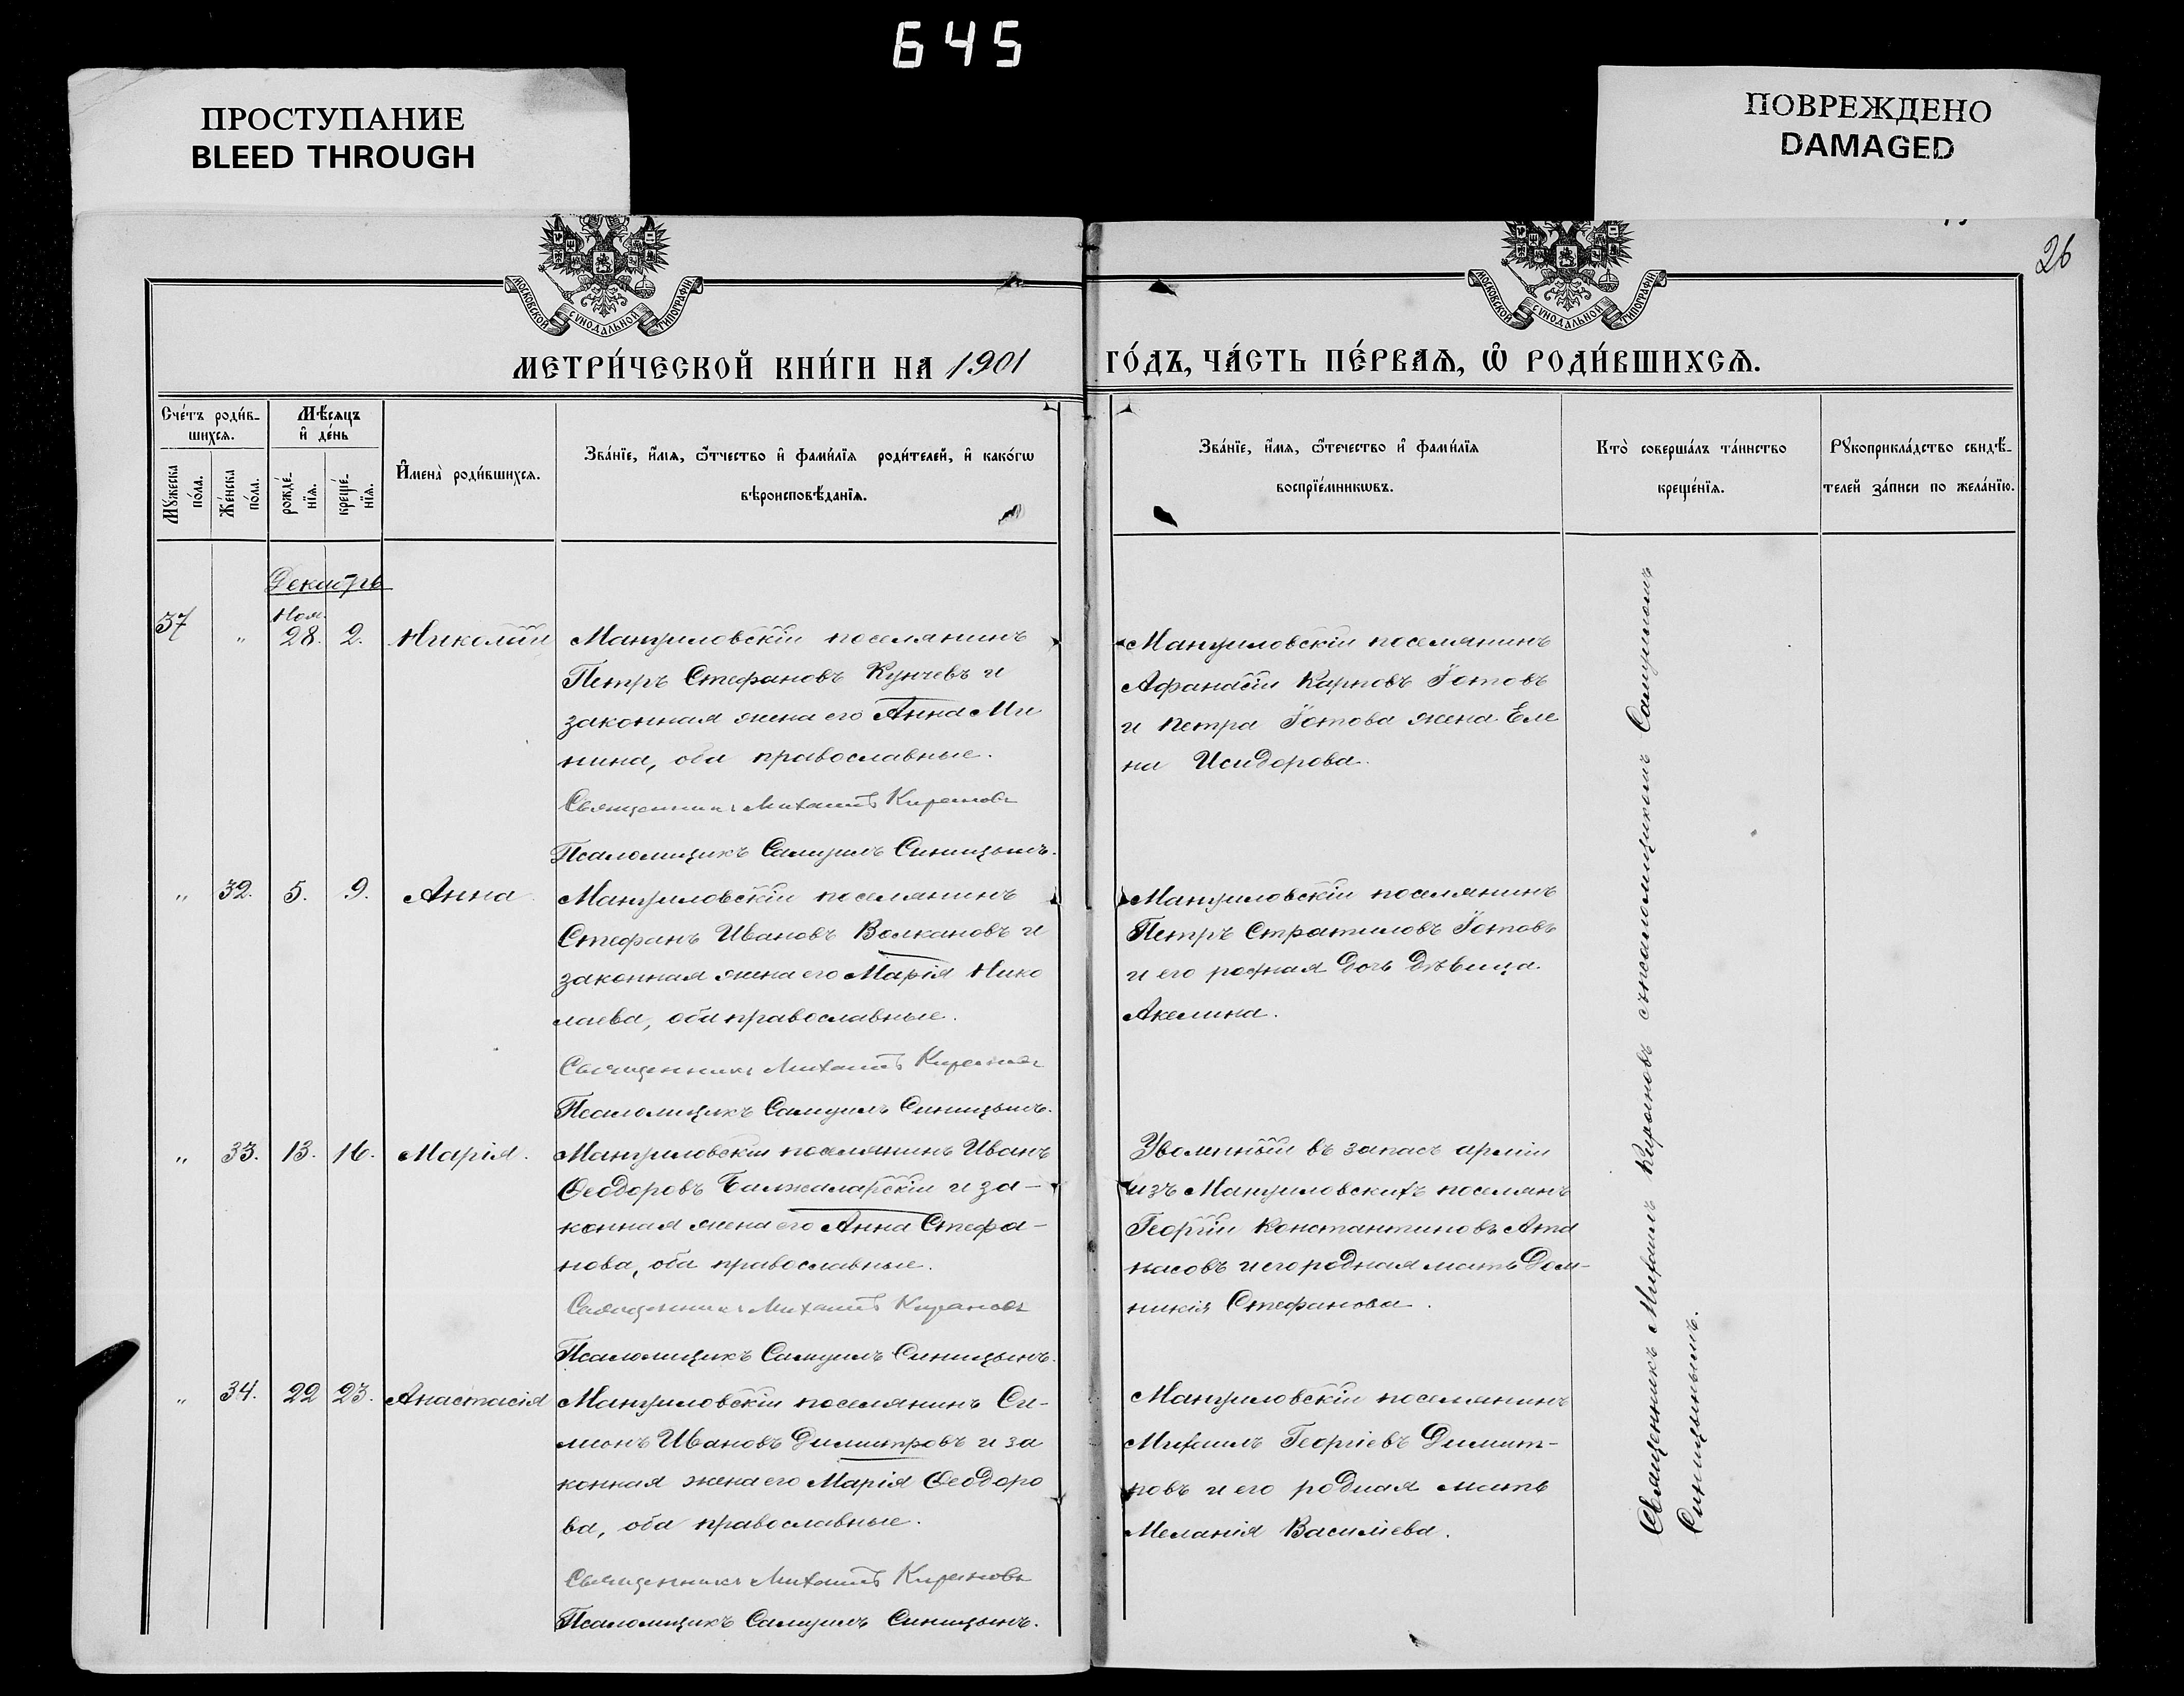 645
ПРОСТУПАНИЕ
BLEED THROUGH
ПОВРЕЖДЕНО
DAMAGED
26
МОСКОВСКОЙ СУНОДАЛЬНОЙ ТИПОГРАФІИ
МОСКОВСКОЙ СУНОДАЛЬНОЙ ТИПОГРАФІИ
МЕТРИ́ЧЕСКОЙ КНИ́ГИ НА 1901
ГО́ДЪ, ЧА́СТЬ ПЕ́РВАѦ, Ѡ РОДИ́ВШИХСѦ.
Сче́тъ роди́в-
шихсѧ.
Мꙋ́жеска по́ла.
Же́нска по́ла.
Мѣ́сѧцъ
и҆ де́нь
рожде́-
нїѧ.
креще́-
нїѧ.
И҆мена̀ роди́вшихсѧ.
Зва́нїе, и҆́мѧ, ѻ҆́тчество и҆ фами́лїѧ роди́телей, и҆ како́гѡ
вѣроисповѣ́данїѧ.
Зва́нїе, и҆́мѧ, ѻ҆́течество и҆ фами́лїѧ
воспрїе́мникѡвъ.
Кто̀ соверша́лъ та́инство
креще́нїѧ.
Рꙋкоприкла́дство свидѣ́-
телей за́писи по жела́нїю.
Декабрь
37 " Ноя. 28. 2. Николай
Мануиловскій поселянинъ
Петръ Стефановъ Кунчевъ и
законная жена его Анна Ми
нина, оба православные.
Священникъ Михаилъ Кирановъ
Псаломщикъ Самуилъ Синицынъ.
Мануиловскій поселянинъ
Афанасій Карповъ Іотовъ
и Петра Іотова жена Еле
на Исидорова.
" 32. 5. 9. Анна
Мануиловскій поселянинъ
Стефанъ Ивановъ Волкановъ и
законная жена его Марія Нико
лаева, оба православные.
Священникъ Михаилъ Кирановъ
Псаломщикъ Самуилъ Синицынъ.
Мануиловскій поселянинъ
Петръ Стратиловъ Іотовъ
и его родная дочь дѣвица
Акелина.
" 33. 13. 16. Марія.
Мануиловскій поселянинъ Иванъ
Ѳеодоровъ Балжаларскій и за-
конная жена его Анна Стефа-
нова, оба православные.
Священникъ Михаилъ Кирановъ
Псаломщикъ Самуилъ Синицынъ.
Уволенный въ запасъ арміи
изъ Мануиловскихъ поселянъ
Георгій Константиновъ Ата
насовъ и его родная мать Дом-
никія Стефанова.
" 34. 22 23. Анастасія
Мануиловскій поселянинъ Си-
меонъ Ивановъ Димитровъ и за
конная жена его Марія Ѳеодоро
ва, оба православные.
Священникъ Михаилъ Кирановъ
Псаломщикъ Самуилъ Синицынъ.
Мануиловскій поселянинъ
Михаилъ Георгіевъ Димит-
ровъ и его родная мать
Меланія Василіева.
Священникъ Михаилъ Кирановъ съ псаломщикомъ Самуиломъ
Синицынымъ.